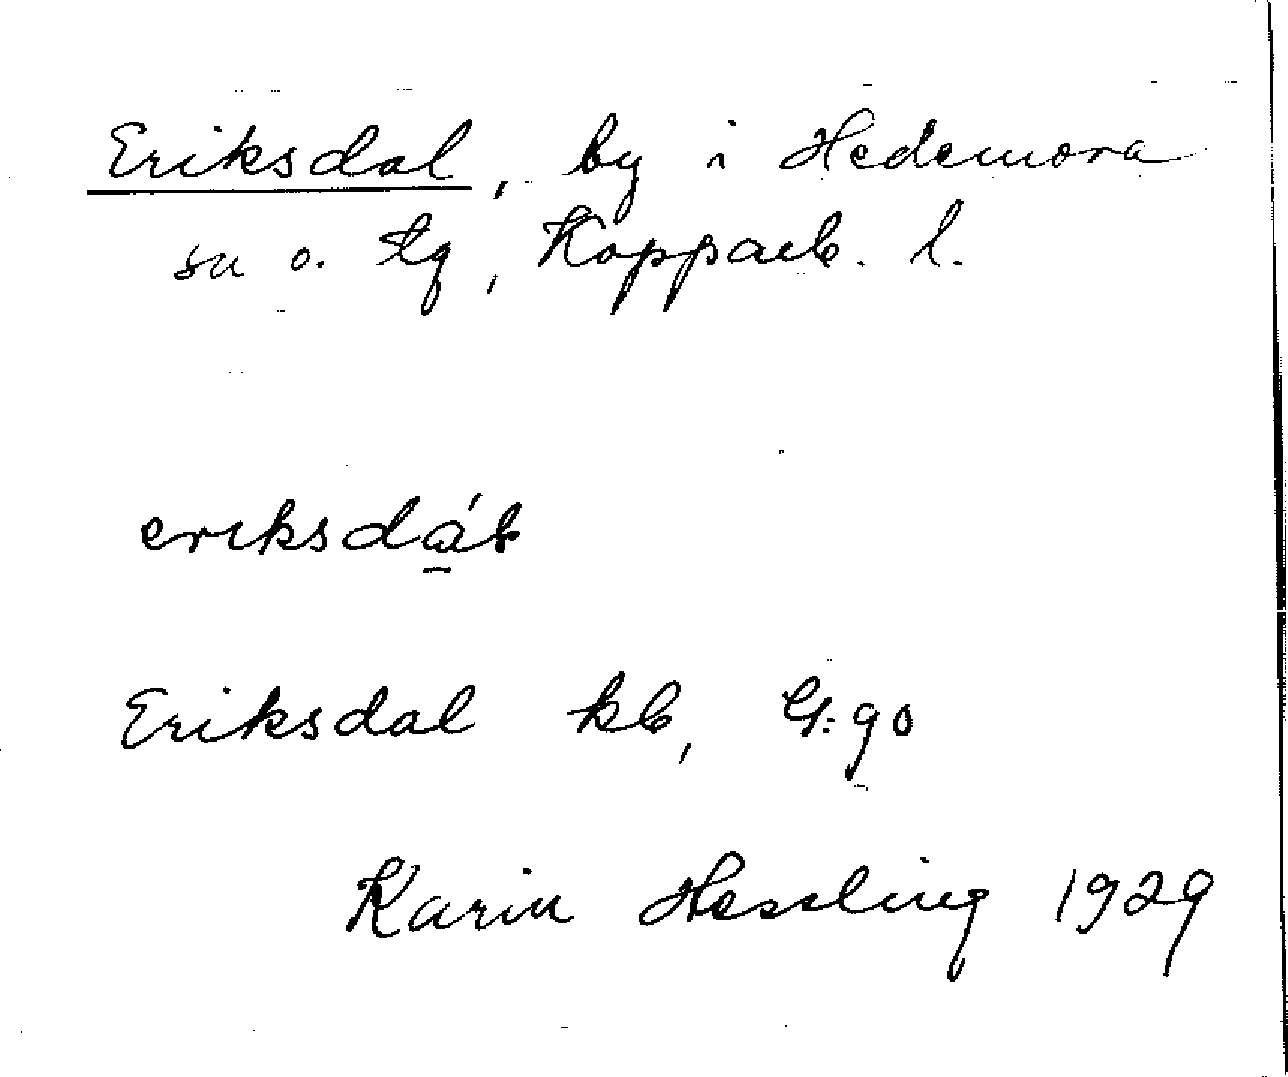 Eriksdal, by i Hedemora
sn o. tg, Kopparb. l.
eriksdá̱l
Eriksdal kb, G:90
Karin Hessling 1929